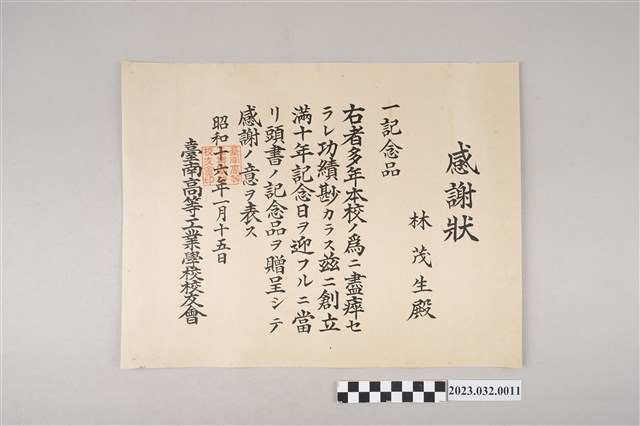 感謝狀
林茂生殿
一記念品
右者多年本校ノ為ニ盡瘁セ
ラレ功績尠カラス茲ニ創立
滿十年記念日ヲ迎フルニ當
リ頭書ノ記念品ヲ贈呈シテ
感謝ノ意ヲ表ス
昭和十六年一月十五日
臺南高等工業學校校友會
2023.032.0011